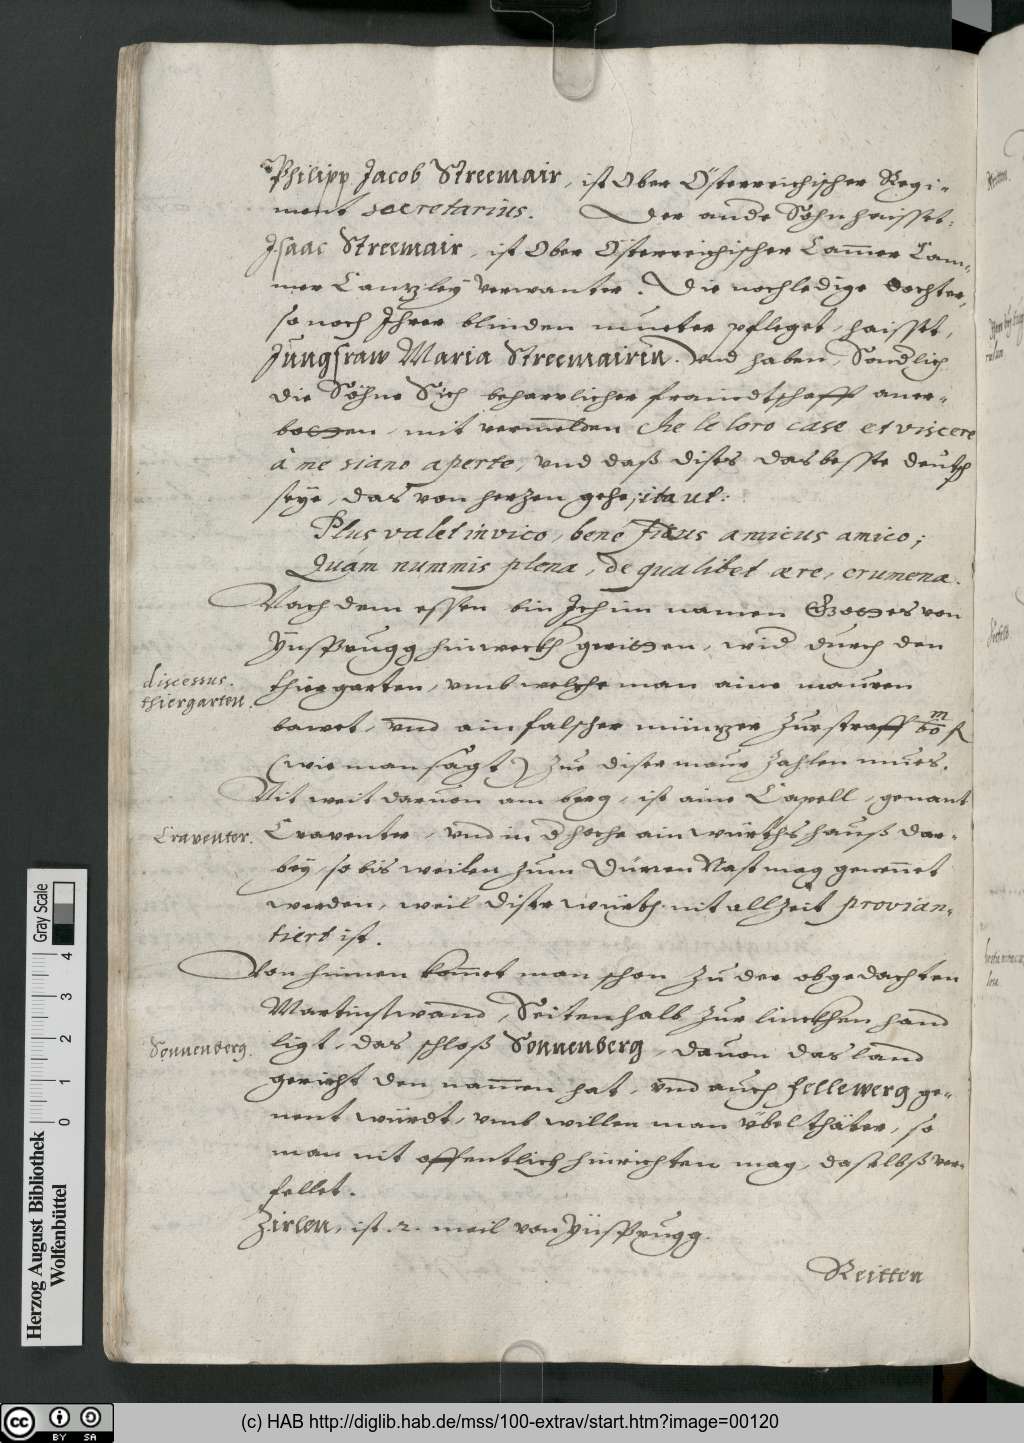 Philipp Jacob Streemair, ist Ober Österreichischer Regi-
ment secretarius. Der ande Sohn haisset:
Isaac Streemair, ist Ober Österreichischer Cam̄er Cam-
mer Cantzleÿ verwanter. Die noch ledige dochter,
so noch Ihrer blinden mueter pfleget, haisset,
Jungfraw Maria Streemairin. Vnd haben, Sondlich
die Söhne Sich beharrlicher fraindtschafft aner-
botten, mit vermelden che le loro case et viscere
à me siano aperte, vnd daß dises das besste deutsch
seÿe, das von herzen gehe, ita ut:
Plus valet in vico, bene fidus amicus amico;
Quám nummis plena, de qualibet ære, crumena.
Nach dem essen bin Ich im namen Gottes von
Ÿnsprugg hinweckh geritten, wid durch den
discessus.
thiergarten.
thiergarten, vmb welche man aine mauren
bawet, vnd ain falscher müntzer zur straff m/60 f
(wie man sagt) zue diser maur zahlen mues.
Nit weit daruon am berg, ist aine Capell, genant
Craventer.
Craventer, vnd in d hoche ain würthshauß dar-
beÿ, so bis weilen zum dürren Nast mag genen̄et
werden, weil diser würth nit allzeit provian-
tiert ist.
Von hinnen kom̄et man schon zu der obgedachten
Martinswand, Seitenhalb zur linckhen hand
Sonnenberg.
ligt, das schloß Sonnenberg, dauon das land
gericht den nam̄en hat, vnd auch hellewerg ge-
nent würdt, vmb willen man übelthäter, so
man nit offentlich hinrichten mag, daselbß ver-
fellet.
Zirlen, ist .2. meil von Ÿnsprugg.
Reitten
Herzog August Bibliothek
Wolfenbüttel
Gray Scale
0 1 2 3 4
cc BY SA
(c) HAB http://diglib.hab.de/mss/100-extrav/start.htm?image=00120